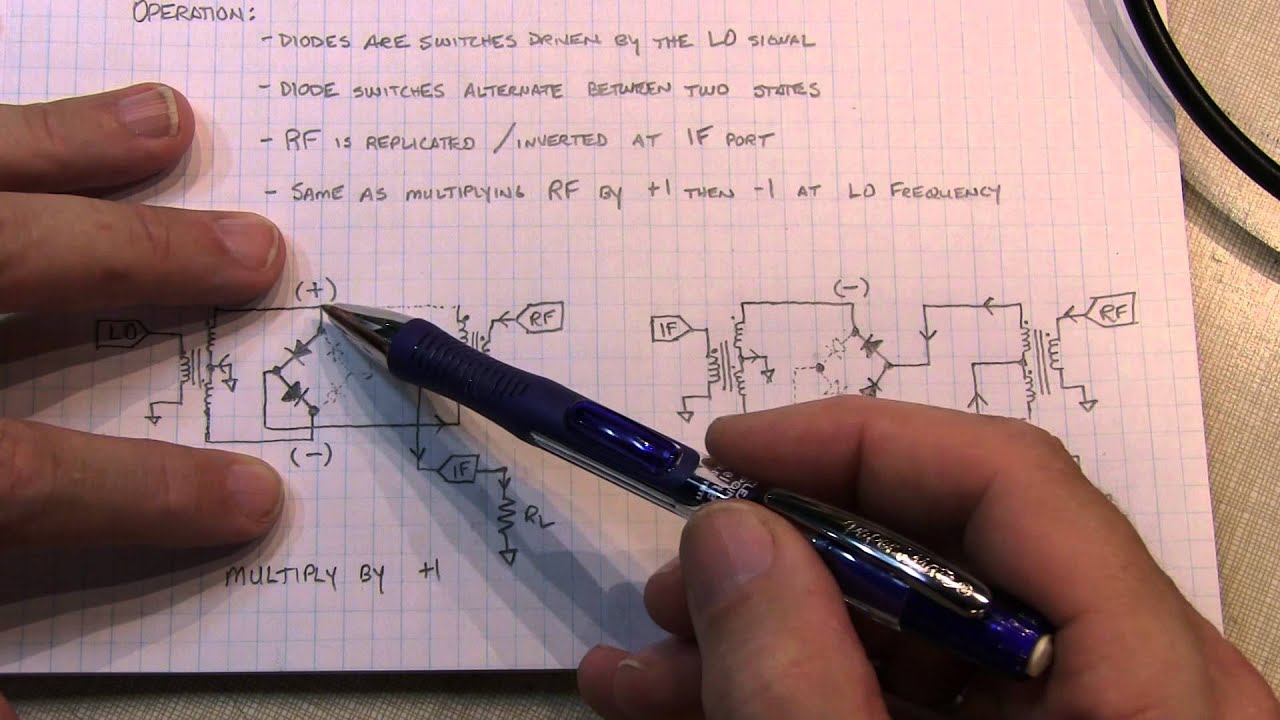 OPERATION:
- DIODES ARE SWITCHES DRIVEN BY THE LO SIGNAL
- DIODE SWITCHES ALTERNATE BETWEEN TWO STATES
- RF IS REPLICATED / INVERTED AT IF PORT
- SAME AS MULTIPLYING RF BY +1 THEN -1 AT LO FREQUENCY
(+)
(-)
LO
RF
IF
RF
(-)
IF
RL
MULTIPLY BY +1